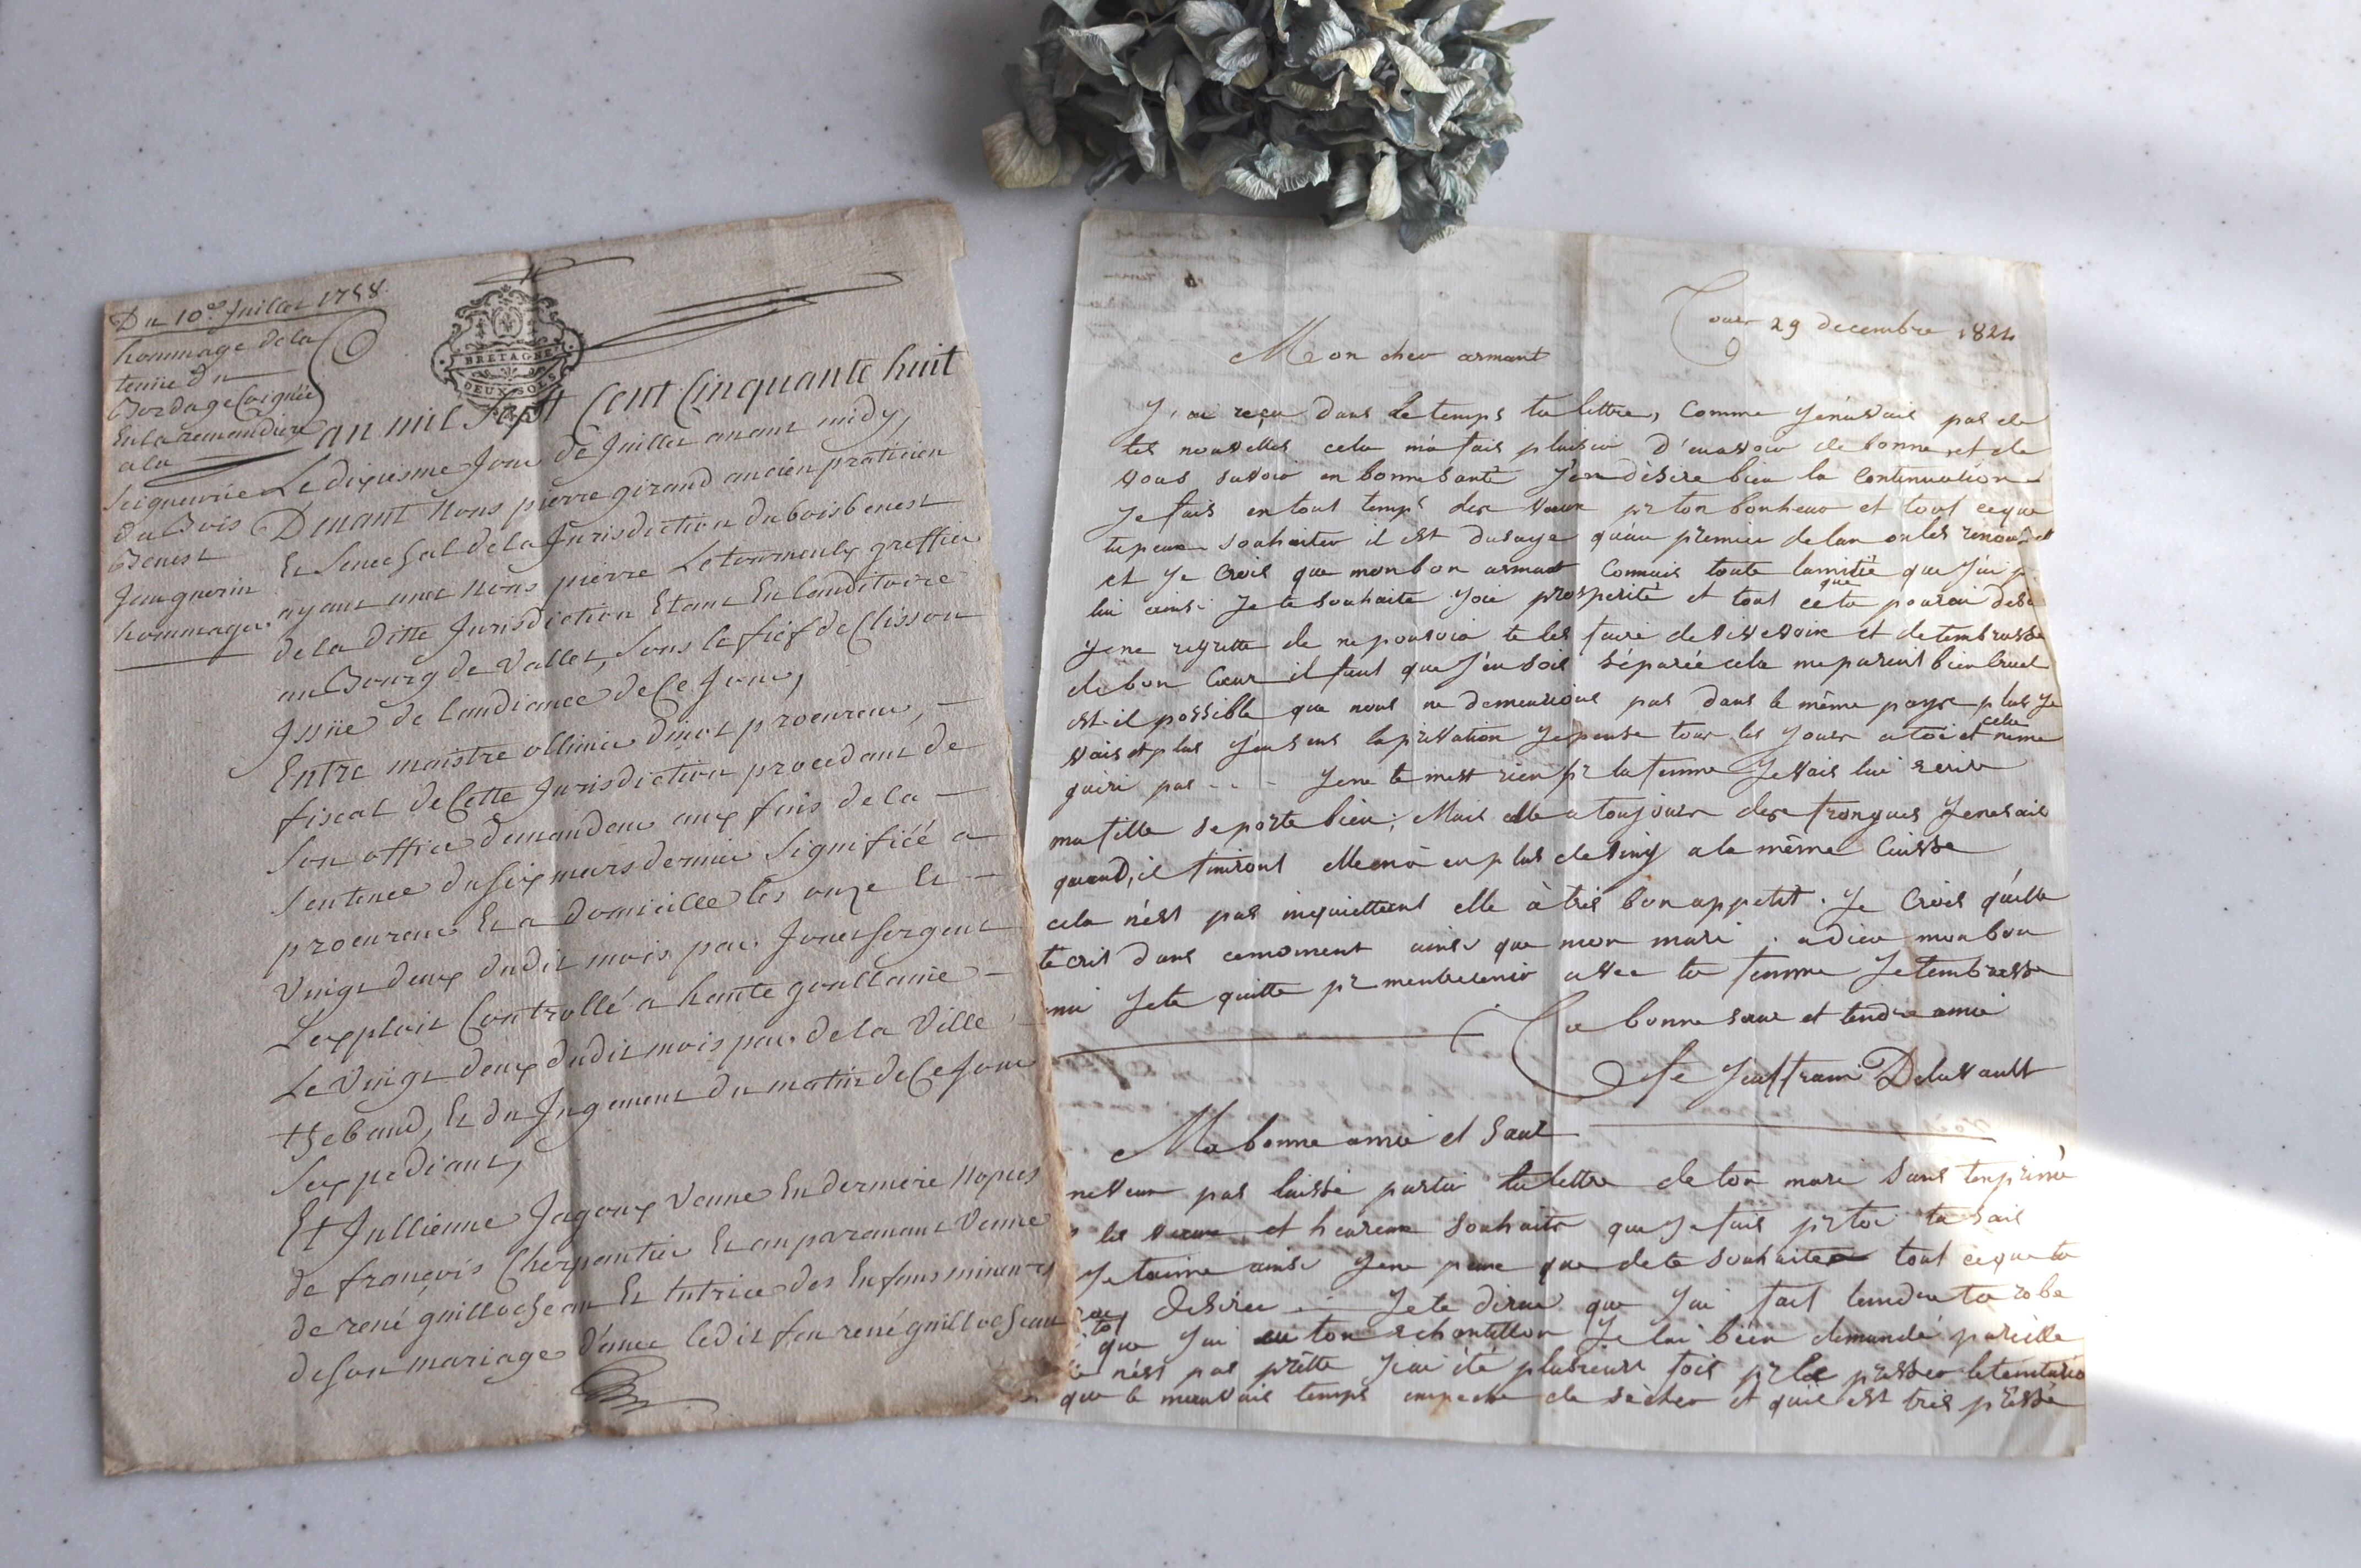 Du 10.e Juillet 1758.
hommage de la
tenue du
Bordage
En la
a la
Seigneurie
du Bois
Benest
Jan guerin
hommager
BRETAGNE
DEUX SOLS
an mil Sept Cent Cinquante huit
Le dixiesme Jour de Juillet avant midy,
Devant Nous pierre giraud ancien praticien
Et Senechal de la Jurisdiction du boisbenest
ayant avec Nous pierre Letourneulx greffier
de la ditte Jurisdiction Etant En Lauditoire
au Bourg de Vallet, Sous le fief de Clisson
Issüe de Laudiance de Ce Jour,
Entre maistre ollivier procureur,
fiscal de Cette Jurisdiction procedant de
Son office demandeur aux fins de la
Sentence du Six mars dernier Signifiéé a
procureur Et a domicille les onze Et
Vingt deux dudit mois par Sergent
L'exploit Controllé a haute goullaine
Le Vingt deux dudit mois par de la Ville
thebaud, Et du Jugement du matin de Ce Jour
S'expediant,
Et Jullienne Jagoux Veuve En derniere Nopces
de françois Cherpantier Et auparavant Veuve
de rené guillocheau Et tutrice des Enfans mineurs
de Son mariage avec ledit feu rené guillocheau
29 decembre 1824
Mon cher armant
J'ai reçu dans le temps ta lettre, Comme Jenavais pas de
tes nouvelles cela m'a fais plaisir d'en avoir de bonne et de
vous savoir en bonne santé J'en désire bien la Continuation
Je fais en tout temps des vœux pr ton bonheur et tout ceque
tu peux souhaiter il est dusage qu'au premier de lan on les
et Je Crois que mon bon armant Connais toute lamitié que J'ai p.
lui ainsi Je te souhaite Joie prosperité et tout ce que tu pourai
Jene regrette de ne pouvoir te les faire de vive voix et detembrasse
de bon Cœur il faut que J'en sois séparée cela me parait bien Cruel
est-il possible que nous ne demeurions pas dans le même pays plus Je
vais et plus J'en sens la privation Je pense tour les Jours a toi et cela neme
gairi pas - . - Jene te mest rien pr ta femme Je vais lui écrire
ma fille se porte bien; Mais elle a toujours des Jenesais
quand, il finiront elle en a eu plus de a la même Cuisse
cela n'est pas inquiettant elle à très bon appetit. Je Crois qu'elle
tecrit dans cemoment ainsi que mon mari. adieu mon bon
ami Je te quitte pr avec ta femme Je tembrasse
Ta bonne sœur et tendre amie
Delavault
Ma bonne amie et Sœur
neveux pas laissé partir ta lettre de ton mari Sans
les vœux et heureux souhaits que Je fais pr toi tu sais
Je taime ainsi Jene peux que dete souhaiter tout ceque tu
desirer Je te dirai que J'ai fait ta robe
que J'ai eu ton echantillon Je lai bien demandé pareille
n'est pas prette J'ai été plusieurs fois pr le presser
que le mauvais temps empeche de sècher et quil est très pressé